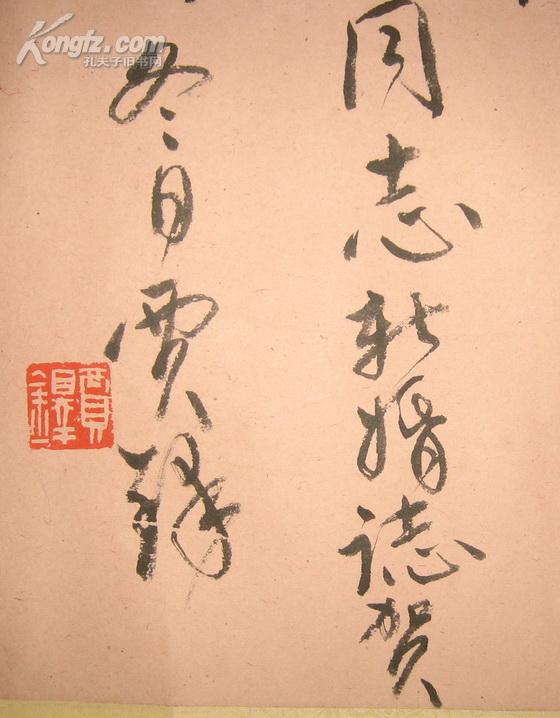 同志新婚誌贺
冬日贾铎
Kongfz.com
孔夫子旧书网